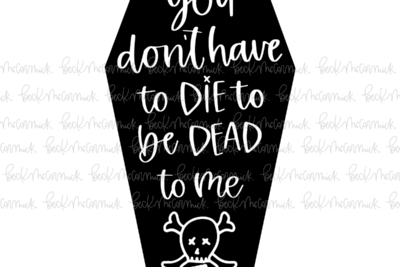 you
don't have
to DiE to
be DEAD
to me
Beck McCormick